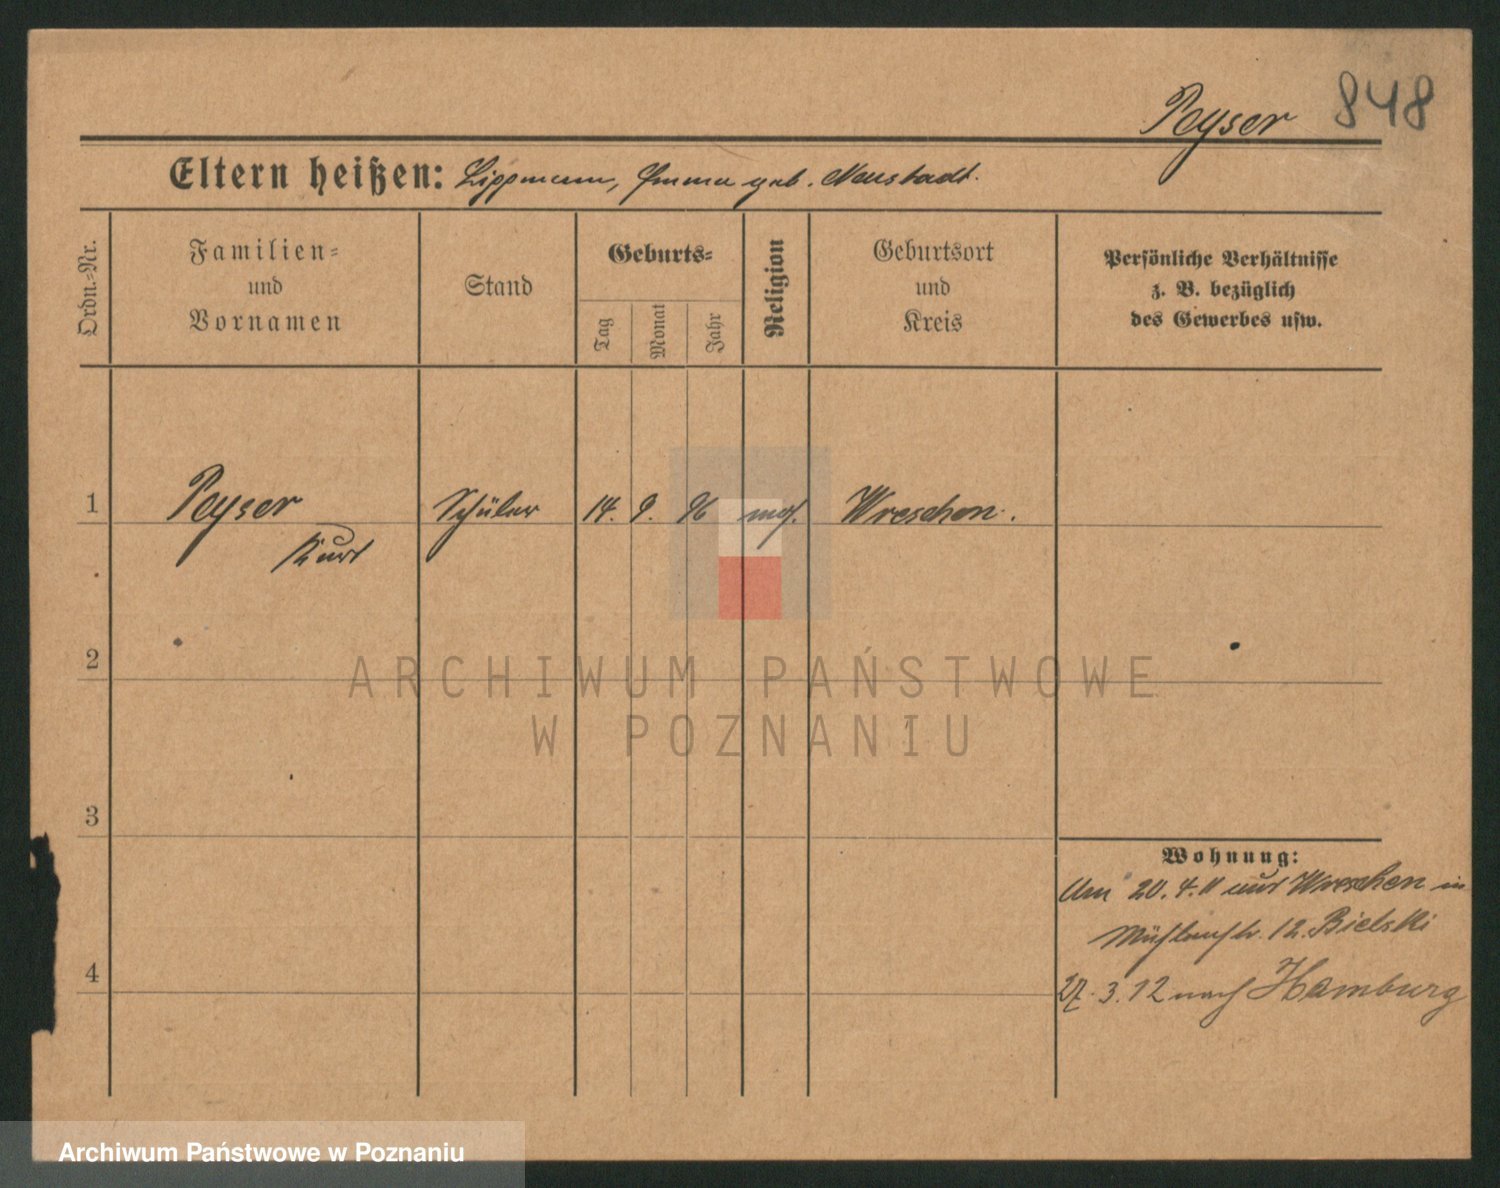 Peyser 848
Eltern heißen: Lippmann, Emma geb. Neustadt.
Ordn.-Nr.
Familien-
und
Vornamen
Stand
Geburts-
Tag
Monat
Jahr
Religion
Geburtsort
und
Kreis
Persönliche Verhältnisse
z. B. bezüglich
des Gewerbes usw.
1 Peyser Schüler 14. 9. 96 mos. Wreschen.
Kurt
2
ARCHIWUM PAŃSTWOWE
W POZNANIU
3
Wohnung:
Am 20. 4. 11 aus Wreschen in
Mühlenstr. 12. Bielski
4
27. 3. 12 nach Hamburg
Archiwum Państwowe w Poznaniu